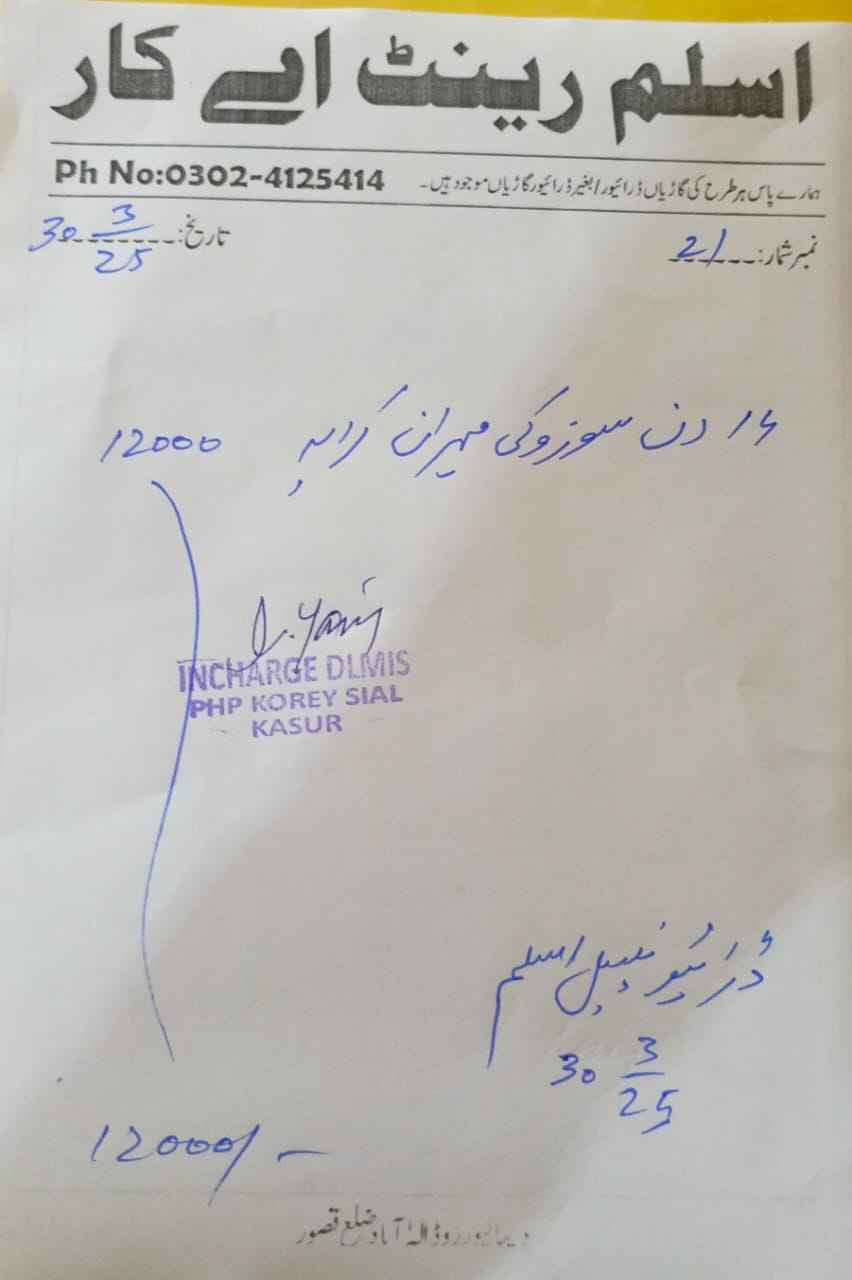 اسلم رینٹ اے کار
Ph No:0302-4125414 ہمارے پاس ہر طرح کی گاڑیاں ڈرائیور / بغیر ڈرائیور گاڑیاں موجود ہیں۔
نمبر شمار: 21 تاریخ: 30 3/25
دن سوزوکی مہران کرایہ 12000
INCHARGE DLMIS
PHP KOREY SIAL
KASUR
ڈرائیور نبیل اسلم
30 3/25
12000/-
دیپالپور روڈ الہ آباد ضلع قصور